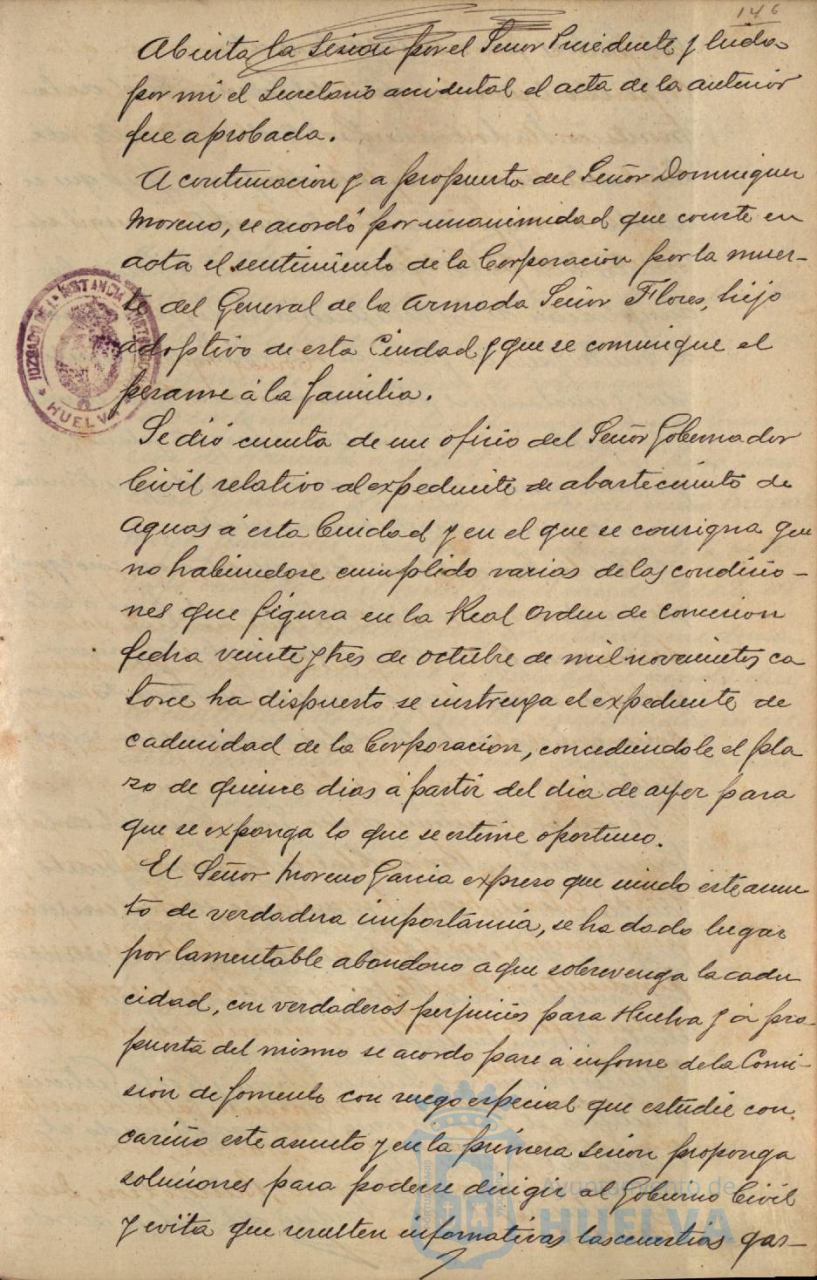 146
Abierta la sesion por el Señor Presidente y leida
por mi el Secretario accidental el acta de la anterior
fue aprobada.
A continuacion y a propuesta del Señor Dominguez
Moreno, se acordó por unanimidad que conste en
acta el sentimiento de la Corporacion por la muer-
te del General de la Armada Señor Flores, hijo
adoptivo de esta Ciudad y que se comunique el
pesame á la familia.
Se dió cuenta de un oficio del Señor Gobernador
Civil relativo al expediente de abastecimiento de
Aguas á esta Ciudad y en el que se consigna que
no habiendose cumplido varias de las condicio-
nes que figura en la Real Orden de Concesion
fecha veinte y tres de Octubre de mil novecientos ca
torce ha dispuesto se instruya el expediente de
caducidad de la Corporacion, concediendole el pla
zo de quince dias á partir del dia de ayer para
que se exponga lo que se estime oportuno.
El Señor Moreno Garcia expreso que siendo este asun
to de verdadera importancia, se ha dado lugar
por lamentable abandono a que sobrevenga la cadu
cidad, con verdaderos perjuicios para Huelva y á pro-
puesta del mismo se acordo pase á informe de la Comi-
sion de fomento con ruego especial que estudie con
cariño este asunto y en la primera sesion proponga
soluciones para poderse dirigir al Gobierno Civil
y evita que resulten infomativas las cuestias gas-
JUZGADO DE 1ª INSTANCIA
HUELVA
Ayuntamiento de
HUELVA